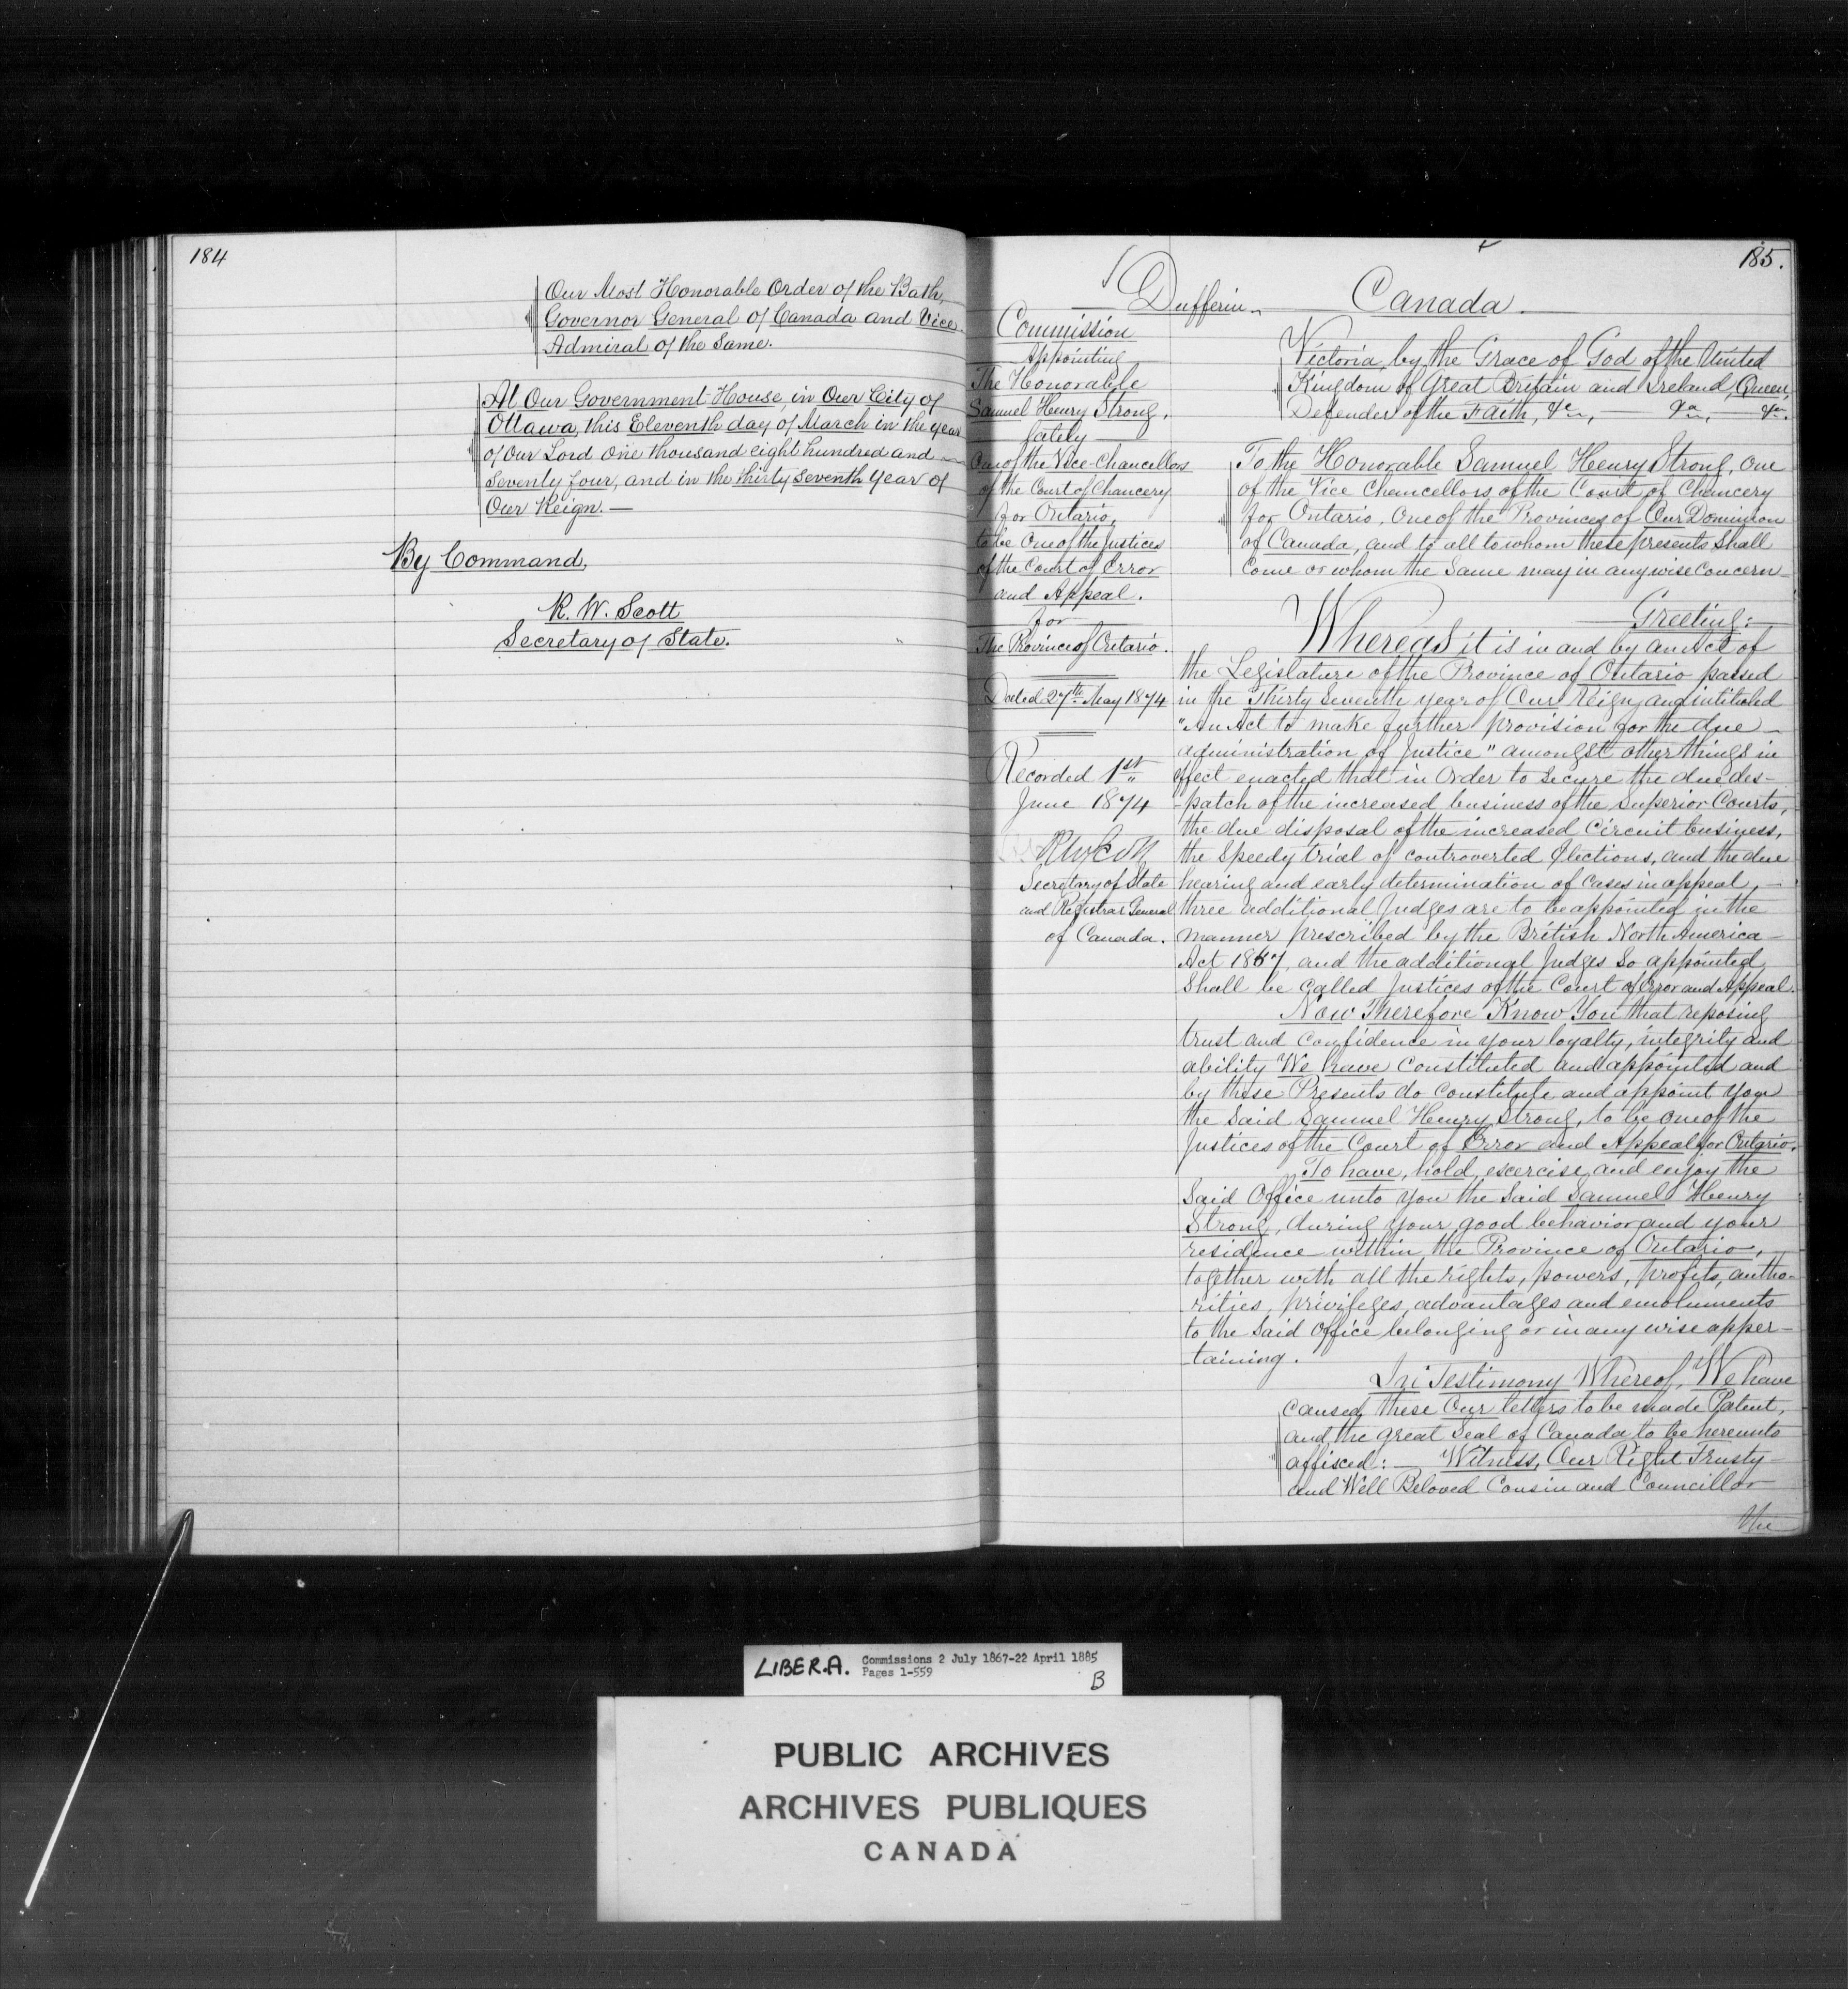 184
Our Most Honorable Order of the Bath,
Governor General of Canada and Vice
Admiral of the Same.
At Our Government House, in Our City of
Ottawa, this Eleventh day of March in the year
of Our Lord One thousand eight hundred and
Seventy four, and in the thirty seventh Year of
Our Reign.—
By Command,
R. W. Scott
Secretary of State.
185.
Dufferin
Canada.
Commission
Appointing
The Honorable
Samuel Henry Strong,
lately
One of the Vice Chancellors
of the Court of Chancery
for Ontario,
to be One of the Justices
of the Court of Error
and Appeal.
for
The Province of Ontario.
Dated 27th May 1874
Recorded 1st
June 1874
RWScott
Secretary of State
and Registrar General
of Canada.
Victoria, by the Grace of God of the United
Kingdom of Great Britain and Ireland, Queen,
Defender of the Faith, &c, — &a, — &a.
To the Honorable Samuel Henry Strong, One
of the Vice Chancellors of the Court of Chancery
for Ontario, One of the Provinces of Our Dominion
of Canada, and to all to whom these presents Shall
Come or whom the Same may in anywise Concern
Greeting:
Whereas it is in and by an Act of
the Legislature of the Province of Ontario passed
in the Thirty Seventh year of Our Reign and intituled
"An Act to make further provision for the due
administration of Justice" amongst other things in
effect enacted that in Order to Secure the due des-
-patch of the increased business of the Superior Courts,
the due disposal of the increased Circuit business,
the Speedy trial of controverted Elections, and the due
hearing and early determination of Cases in appeal,—
three additional Judges are to be appointed in the
manner prescribed by the British North America
Act 1867, and the additional Judges So appointed
Shall be Called Justices of the Court of Error and Appeal.
Now Therefore Know You that reposing
trust and Confidence in your loyalty, integrity and
ability We have Constituted and appointed and
by these Presents do Constitute and appoint you
the Said Samuel Henry Strong, to be one of the
Justices of the Court of Error and Appeal for Ontario.
To have, hold, exercise and enjoy the
Said Office unto you the Said Samuel Henry
Strong, during your good behavior and your
residence within the Province of Ontario,
together with all the rights, powers, profits, autho-
rities, privileges, advantages and emoluments
to the Said Office belonging or in any wise apper-
-taining.
In Testimony Whereof, We have
Caused these Our letters to be made Patent,
and the Great Seal of Canada to be hereunto
affixed:— Witness, Our Right Trusty
and Well Beloved Cousin and Councillor
the
LIBER.A. Commissions 2 July 1867-22 April 1885
Pages 1-559
B
PUBLIC ARCHIVES
ARCHIVES PUBLIQUES
CANADA